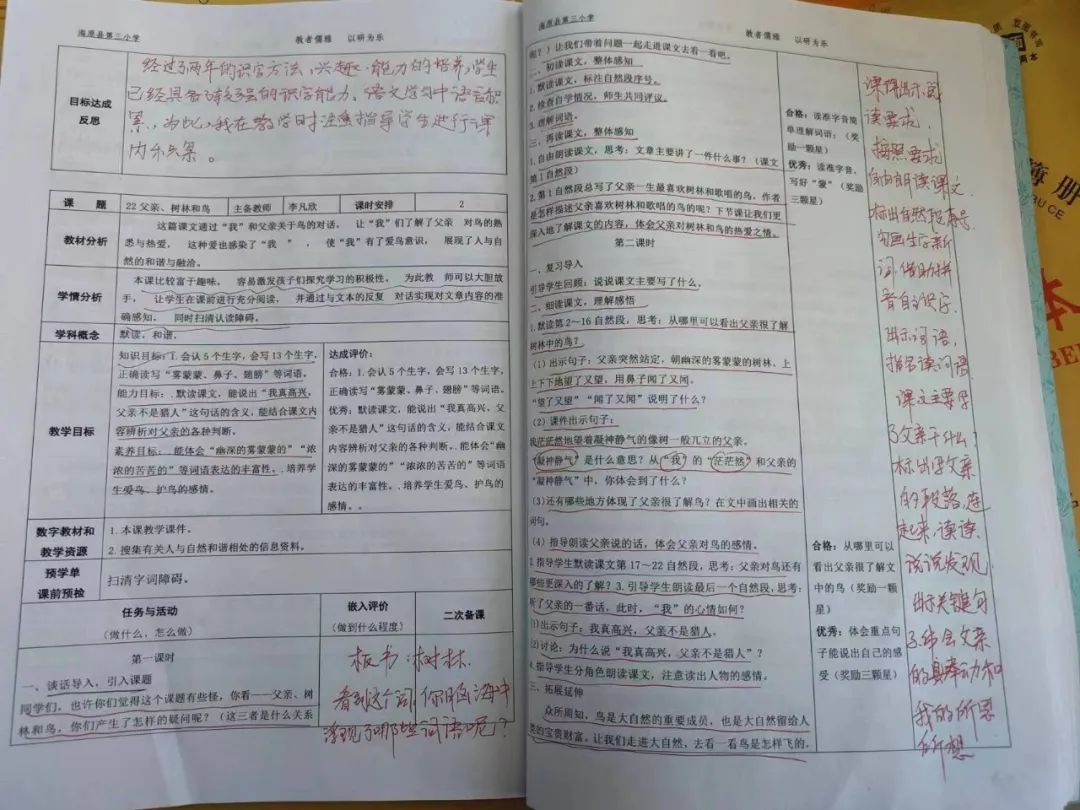 海原县第三小学
教者儒雅 以研为乐
目标达成
反思
经过了两年的识字方法、兴趣、能力的培养,学生
已经具备了较强的识字能力。语文学习中语言积
累,为此,我在教学时注意指导学生进行课
内外
课 题
22 父亲、树林和鸟
主备教师
李凡欣
课时安排
2
教材分析
这篇课文通过“我”和父亲关于鸟的对话, 让“我”们了解了父亲 对鸟的熟
悉与热爱, 这种爱也感染了“我 ”, 使“我”有了爱鸟意识, 展现了人与自
然的和谐与融洽。
学情分析
本课比较富于趣味, 容易激发孩子们探究学习的积极性。 为此教 师可以大胆放
手, 让学生在课前进行充分阅读, 并通过与文本的反复 对话实现对文章内容的准
确感知。 同时扫清认读障碍。
学科概念
默读,和谐。
教学目标
知识目标:1.会认5个生字,会写13个生字,
正确读写“雾蒙蒙、鼻子、翅膀”等词语。
能力目标:.默读课文,能说出“我真高兴,
父亲不是猎人”这句话的含义,能结合课文内
容辨析对父亲的各种判断。
素养目标:.能体会“幽深的雾蒙蒙的”“浓
浓的苦苦的”等词语表达的丰富性。.培养学
生爱鸟、护鸟的感情。
达成评价:
合格:1.会认5个生字,会写13个生字,
正确读写“雾蒙蒙、鼻子、翅膀”等词语。
优秀:默读课文,能说出“我真高兴,父
亲不是猎人”这句话的含义,能结合课文
内容辨析对父亲的各种判断。.能体会“幽
深的雾蒙蒙的”“浓浓的苦苦的”等词语
表达的丰富性。.培养学生爱鸟、护鸟的
感情。。
数字教材和
教学资源
1.本课教学课件。
2.搜集有关人与自然和谐相处的信息资料。
预学单
课前预检
扫清字词障碍。
任务与活动
(做什么,怎么做)
嵌入评价
(做到什么程度)
二次备课
第一课时
一、谈话导入,引入课题
同学们,也许你们觉得这个课题有些怪,你看——父亲、树
林和鸟,你们产生了怎样的疑问呢?(这三者是什么关系
板书:树林
看到这个词,你脑海中
浮现了哪些词语呢?
海原县第三小学
教者儒雅 以研为乐
呢?)让我们带着问题一起走进课文去看一看吧。
二、初读课文,整体感知
1.默读课文,标注自然段序号。
2.检查自学情况,师生共同评议。
3.理解词语。
三、再读课文,整体感知
1.自由朗读课文,思考:文章主要讲了一件什么事?(课文
第1自然段)
2.第1自然段总写了父亲一生最喜欢树林和歌唱的鸟,作者
是怎样描述父亲喜欢树林和歌唱的鸟的呢?下节课让我们更
深入地了解课文的内容,体会父亲对树林和鸟的热爱之情。
第二课时
一、复习导入
引导学生回顾:说说课文主要写了什么。
二、细读课文,理解感悟
1.默读第2~16自然段,思考:从哪里可以看出父亲很了解
树林中的鸟?
(1)出示句子:父亲突然站定,朝幽深的雾蒙蒙的树林,上
上下下地望了又望,用鼻子闻了又闻。
“望了又望”“闻了又闻”说明了什么?
(2)课件出示句子:
我茫茫然地望着凝神静气的像树一般兀立的父亲。
“凝神静气”是什么意思?从“我”的“茫茫然”和父亲的
“凝神静气”中,你体会到了什么?
(3)还有哪些地方体现了父亲很了解鸟?在文中画出相关的
词句。
(4)指导朗读父亲说的话,体会父亲对鸟的感情。
2.指导学生默读课文第17~22自然段,思考:父亲对鸟还有
哪些更深入的了解?3.引导学生朗读最后一个自然段,思考:
听了父亲的一番话,此时,“我”的心情如何?
(1)出示句子:我真高兴,父亲不是猎人。
(2)讨论:为什么说“我真高兴,父亲不是猎人”?
4.指导学生分角色朗读课文,注意读出人物的感情。
三、拓展延伸
众所周知,鸟是大自然的重要成员,也是大自然留给人
类的宝贵财富。让我们走进大自然,去看一看鸟是怎样飞的。
合格:读准字音能
单理解词语;(奖
励一颗星)
优秀:读准字音、
写好“蒙”(奖励
三颗星)
合格:从哪里可以
看出父亲很了解文
中的鸟(奖励一颗
星)
优秀:体会重点句
子能说出自己的感
受(奖励三颗星)
课件出示阅
读要求,
按照要求
自由朗读课文
标出自然段序号
勾画生字新
词,借助拼
音自主识字.
出示词语,
指名读词语
课文主要写
了父亲干什么?
标出写父亲
的段落,连
起来,读读,
说说发现.
出示关键句
子.体会父亲
的具体动和
我的所思
所想
簿册
本